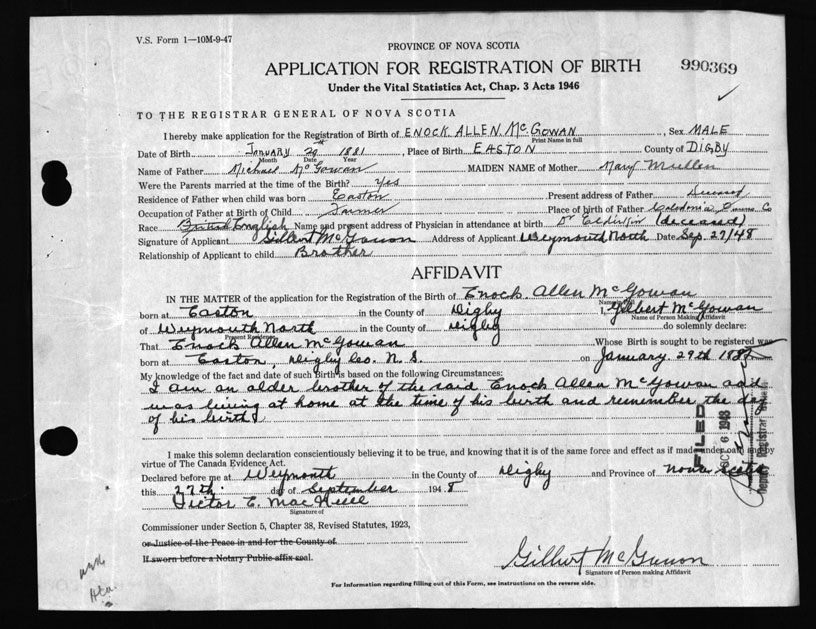 V.S. Form 1—10M-9-47
PROVINCE OF NOVA SCOTIA
APPLICATION FOR REGISTRATION OF BIRTH 990369
Under the Vital Statistics Act, Chap. 3 Acts 1946
TO THE REGISTRAR GENERAL OF NOVA SCOTIA
I hereby make application for the Registration of Birth of ENOCK ALLEN McGOWAN, Sex MALE
Print Name in full
Date of Birth JANUARY 29th 1881, Place of Birth EASTON County of DIGBY
Month Date Year
Name of Father Michael McGowan MAIDEN NAME of Mother Mary Mullen
Were the Parents married at the time of the Birth? Yes
Residence of Father when child was born Easton Present address of Father Deceased
Occupation of Father at Birth of Child Farmer Place of birth of Father Caledonia Co
Race British English Name and present address of Physician in attendance at birth Dr (deceased)
Signature of Applicant Gilbert McGowan Address of Applicant Weymouth North Date Sep. 27/48
Relationship of Applicant to child Brother
AFFIDAVIT
IN THE MATTER of the application for the Registration of the Birth of Enock Allen McGowan
Name in full
born at Easton in the County of Digby I, Gilbert McGowan
Name of Person Making Affidavit
of Weymouth North in the County of Digby do solemnly declare:
Present Residence
That Enock Allen McGowan Whose Birth is sought to be registered was
born at Easton, Digby Co. N. S. on January 29th 1881
My knowledge of the fact and date of such Birth is based on the following Circumstances:
I am an older brother of the said Enock Allen McGowan and
was living at home at the time of his birth and remember the day
of his birth
FILED
DEC 6 1948
Deputy Registrar General
I make this solemn declaration conscientiously believing it to be true, and knowing that it is of the same force and effect as if made under oath and by
virtue of The Canada Evidence Act.
Declared before me at Weymouth in the County of Digby and Province of Nova Scotia
this 27th day of September 1948
Victor E. MacNeill
Signature of
Commissioner under Section 5, Chapter 38, Revised Statutes, 1923,
or Justice of the Peace in and for the County of
If sworn before a Notary Public affix seal.
Gilbert McGowan
Signature of Person making Affidavit
For Information regarding filling out of this Form, see instructions on the reverse side.